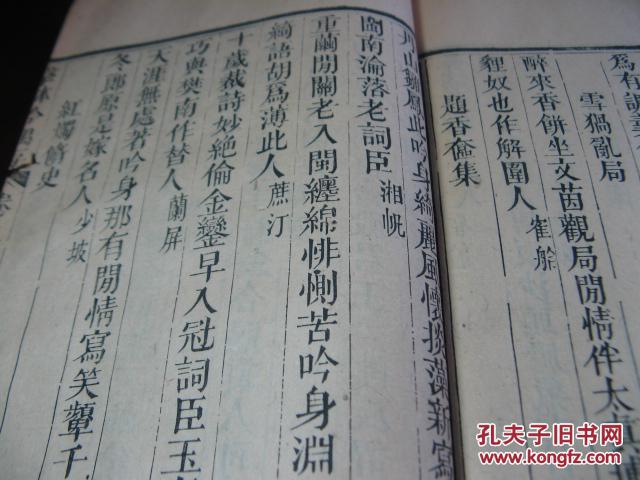 為有
雪猧亂局
醉來香餅坐文茵觀局閒情伴太
貍奴也作解圍人 崔舲
題香奩集
此吟身綺麗風懷掞藻新寫
閩南淪落老詞臣 湘帆
重繭閒關老入閩纏綿悱惻苦吟身淵
綺語胡為薄此人 蔗汀
十歲裁詩妙絕倫金鑾早入冠詞臣玉
巧與樊南作替人 蘭屏
天涯無處著吟身那有閒情寫笑顰千
冬郎原是嫁名人 少坡
紅燭脩史
孔夫子旧书网
www.kongfz.com